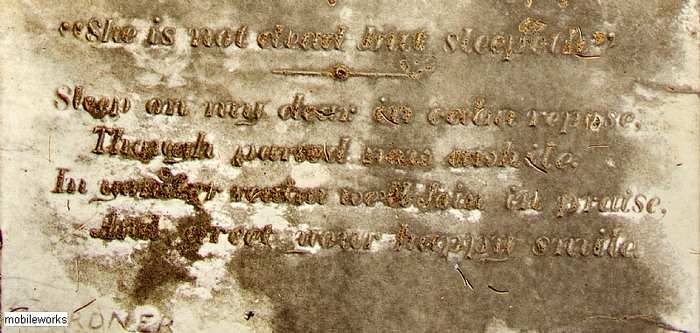 "She is not dead but sleepeth"
Sleep on my dear in calm repose,
Though parted now awhile.
In yonder realm we'll join in praise,
And greet your happy smile.
GARDNER
mobileworks